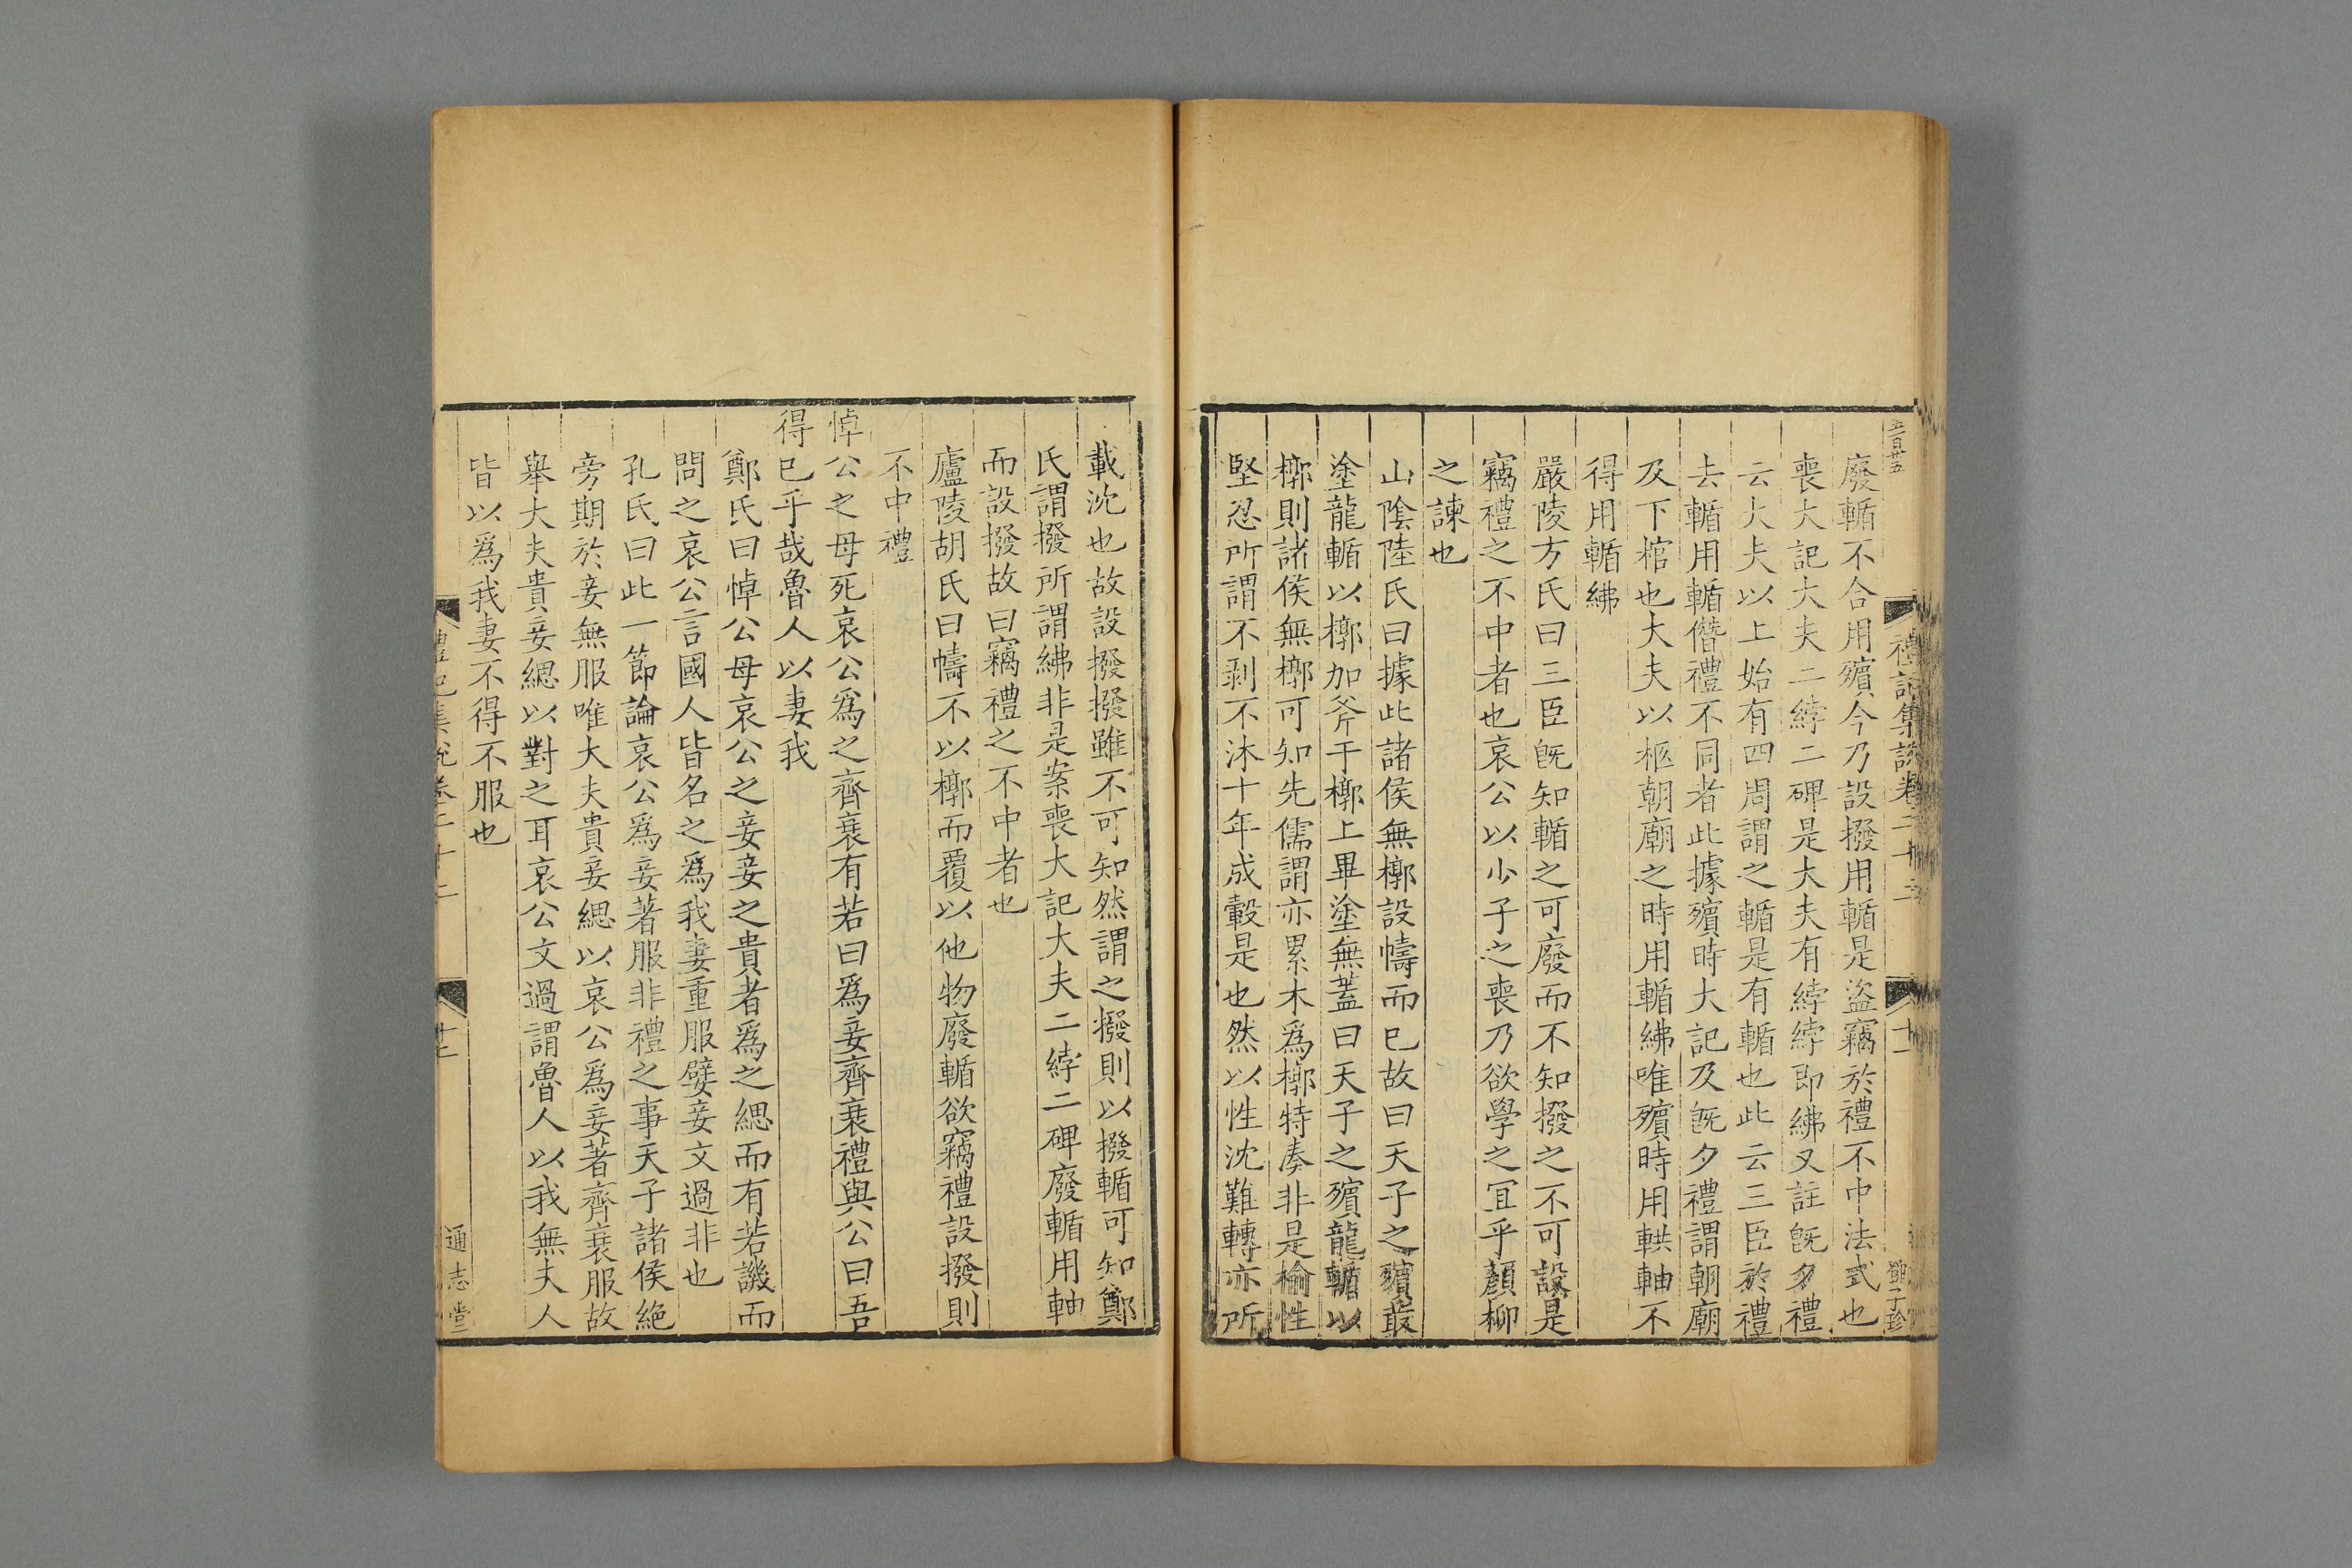 五百卅五
禮記集說卷二十二
十一
鄧子珍
廢輴不合用殯今乃設撥用輴是盜竊於禮不中法式也
喪大記大夫二綍二碑是大夫有綍綍即紼又註旣夕禮
云大夫以上始有四周謂之輴是有輴也此云三臣於禮
去輴用輴僭禮不同者此據殯時大記及旣夕禮謂朝廟
及下棺也大夫以柩朝廟之時用輴紼唯殯時用輁軸不
得用輴紼
嚴陵方氏曰三臣旣知輴之可廢而不知撥之不可設是
竊禮之不中者也哀公以少子之喪乃欲學之宜乎顏柳
之諫也
山陰陸氏曰據此諸侯無槨設幬而已故曰天子之殯菆
塗龍輴以槨加斧于槨上畢塗無蓋曰天子之殯龍輴以
槨則諸侯無槨可知先儒謂亦累木爲槨特湊非是榆性
堅忍所謂不剥不沐十年成轂是也然以性沈難轉亦所
載沈也故設撥撥雖不可知然謂之撥則以撥輴可知鄭
氏謂撥所謂紼非是案喪大記大夫二綍二碑廢輴用軸
而設撥故曰竊禮之不中者也
廬陵胡氏曰幬不以槨而覆以他物廢輴欲竊禮設撥則
不中禮
悼公之母死哀公爲之齊衰有若曰爲妾齊衰禮與公曰吾
得已乎哉魯人以妻我
鄭氏曰悼公母哀公之妾妾之貴者爲之緦而有若譏而
問之哀公言國人皆名之爲我妻重服嬖妾文過非也
孔氏曰此一節論哀公爲妾著服非禮之事天子諸侯絶
旁期於妾無服唯大夫貴妾緦以哀公爲妾著齊衰服故
舉大夫貴妾緦以對之耳哀公文過謂魯人以我無夫人
皆以爲我妻不得不服也
禮記集說卷二十二
十二
通志堂